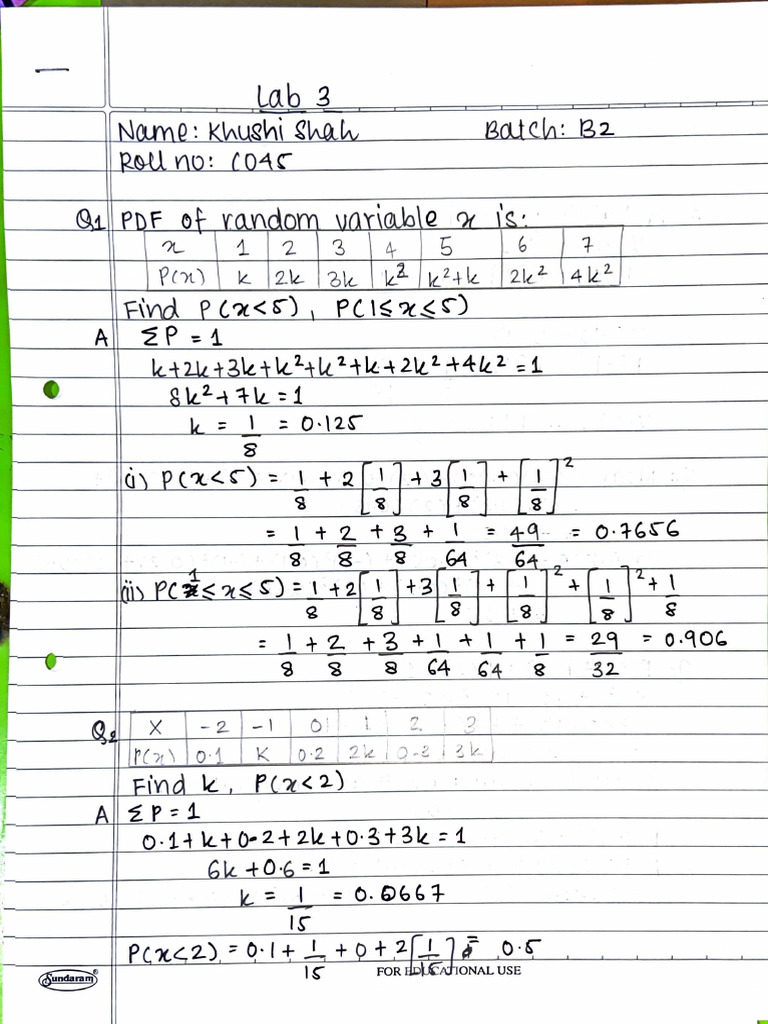 Lab 3
Name: Khushi Shah Batch: B2
Roll no: C045
Q1 PDF of random variable x is:
x 1 2 3 4 5 6 7
P(x) k 2k 3k k² k²+k 2k² 4k²
Find P(x<5), P(1≤x≤5)
A ΣP = 1
k+2k+3k+k²+k²+k+2k²+4k² = 1
8k²+7k = 1
k = 1/8 = 0.125
(i) P(x<5) = 1/8 + 2[1/8] + 3[1/8] + [1/8]²
= 1/8 + 2/8 + 3/8 + 1/64 = 49/64 = 0.7656
(ii) P(1≤x≤5) = 1/8 + 2[1/8] + 3[1/8] + [1/8]² + [1/8]² + 1/8
= 1/8 + 2/8 + 3/8 + 1/64 + 1/64 + 1/8 = 29/32 = 0.906
Q2 X -2 -1 0 1 2 3
P(x) 0.1 K 0.2 2k 0.3 3k
Find k, P(x<2)
A ΣP = 1
0.1+k+0.2+2k+0.3+3k = 1
6k+0.6 = 1
k = 1/15 = 0.0667
P(x<2) = 0.1 + 1/15 + 0 + 2[1/15] = 0.5
Sundaram® FOR EDUCATIONAL USE